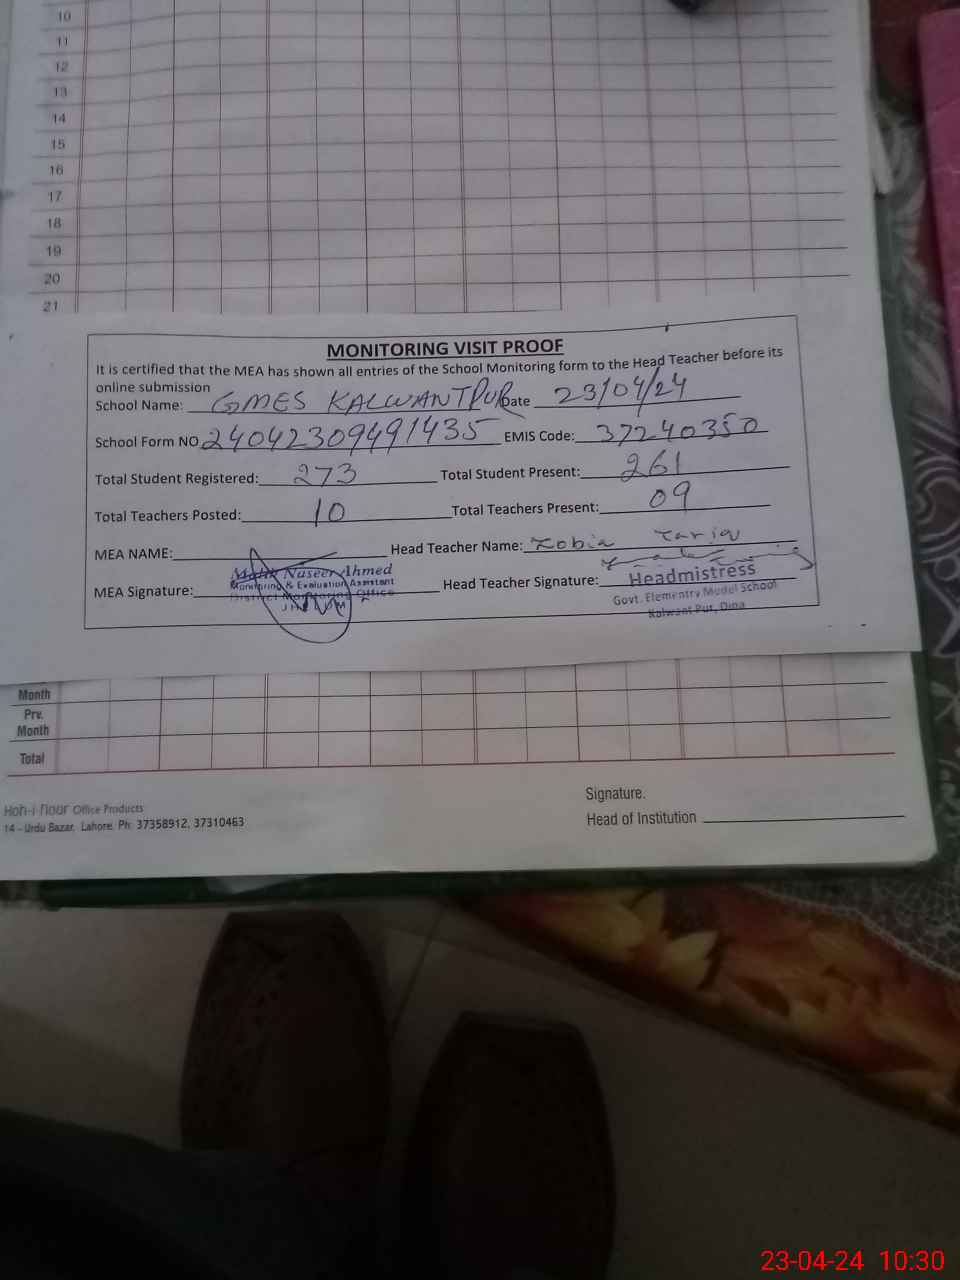 10
11
12
13
14
15
16
17
18
19
20
21
MONITORING VISIT PROOF
It is certified that the MEA has shown all entries of the School Monitoring form to the Head Teacher before its
online submission
School Name: GMES KALWANTPUR Date 23/04/24
School Form NO 24042309491435 EMIS Code: 37240350
Total Student Registered: 273 Total Student Present: 261
Total Teachers Posted: 10 Total Teachers Present: 09
MEA NAME: Head Teacher Name: Zobia Tariq
MEA Signature: Malik Naseer Ahmed Head Teacher Signature:
Monitoring & Evaluation Assistant
District Monitoring Office
Headmistress
Govt. Elementry Model School
Kalwant Pur, Dina
Month
Prv.
Month
Total
Hoh-i-noor Office Products
14 - Urdu Bazar, Lahore, Ph: 37358912, 37310463
Signature.
Head of Institution
23-04-24 10:30